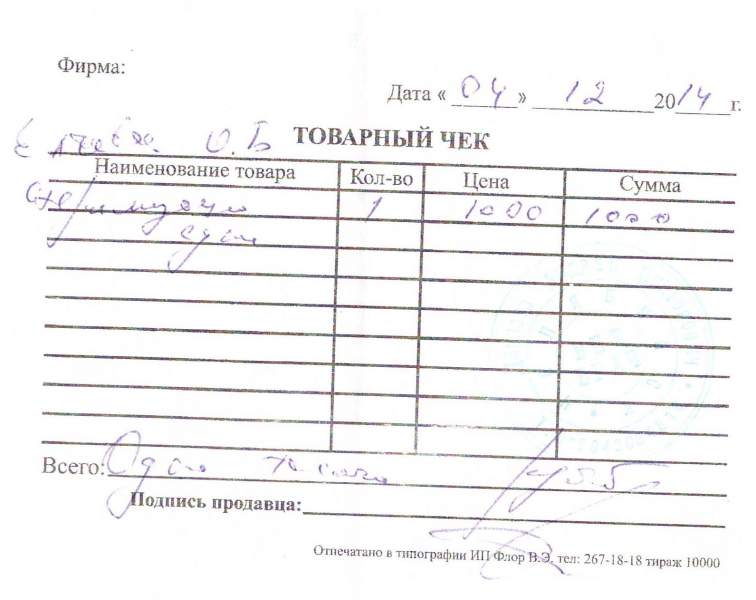 Фирма:
Дата « 04 » 12 2014 г.
О.Б ТОВАРНЫЙ ЧЕК
Наименование товара Кол-во Цена Сумма
1 1000 1000
Всего: Одна тысяча руб.
Подпись продавца:
Отпечатано в типографии ИП Флор В.Э. тел: 267-18-18 тираж 10000